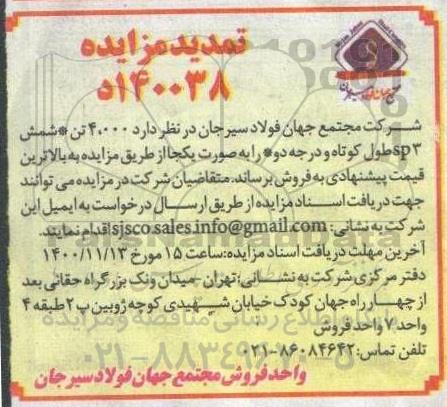 تمدید مزایده
۱۴۰۰۳۸د
شرکت مجتمع جهان فولاد سیرجان در نظر دارد ۴.۰۰۰ تن *شمش
sp۳ طول کوتاه و درجه دو* را به صورت یکجا از طریق مزایده به بالاترین
قیمت پیشنهادی به فروش برساند. متقاضیان شرکت در مزایده می توانند
جهت دریافت اسناد مزایده از طریق ارسال درخواست به ایمیل این
شرکت به نشانی: sjsco.sales.info@gmail.com اقدام نمایند.
آخرین مهلت دریافت اسناد مزایده: ساعت ۱۵ مورخ ۱۴۰۰/۱۱/۱۳
دفتر مرکزی شرکت به نشانی: تهران - میدان ونک بزرگراه حقانی بعد
از چهار راه جهان کودک خیابان شهیدی کوچه ژوبین پ ۲ طبقه ۴
واحد ۷ واحد فروش
تلفن تماس: ۸۶۰۸۴۶۴۲-۰۲۱
واحد فروش مجتمع جهان فولاد سیرجان